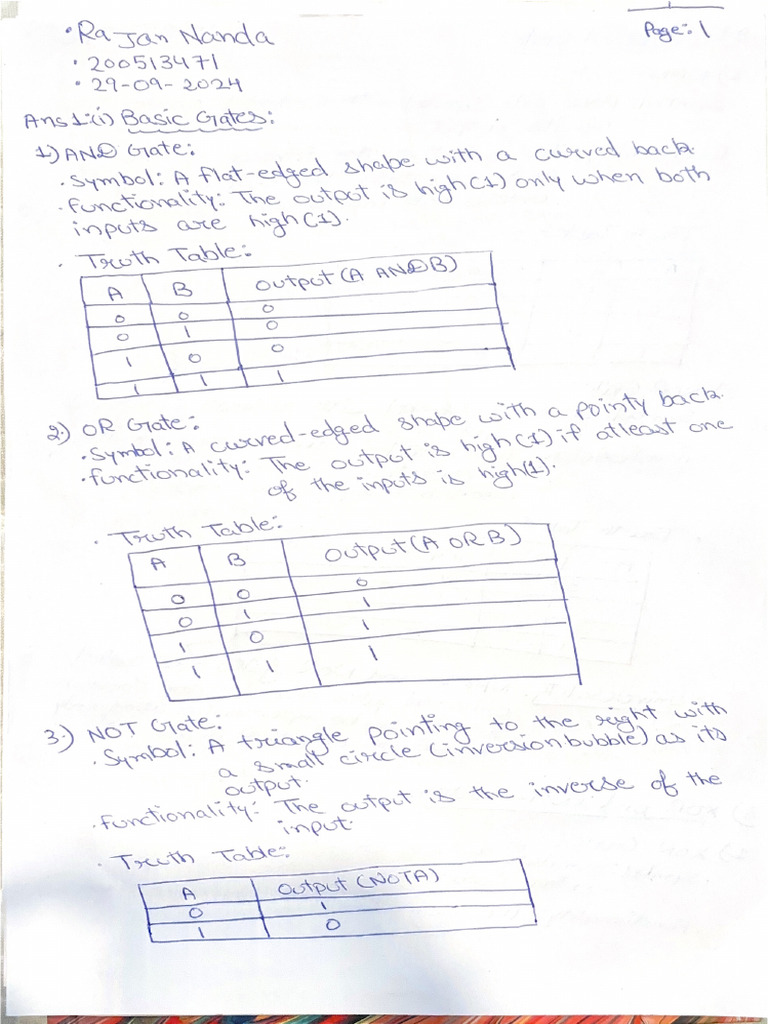 Page: 1
• Rajan Nanda
• 200513471
• 29-09-2024
Ans1:(i) Basic Gates:
1) AND Gate:
• Symbol: A flat-edged shape with a curved back.
• Functionality: The output is high(1) only when both
inputs are high(1).
• Truth Table:
A B Output (A AND B)
0 0 0
0 1 0
1 0 0
1 1 1
2.) OR Gate:
• Symbol: A curved-edged shape with a pointy back.
• functionality: The output is high(1) if atleast one
of the inputs is high(1).
• Truth Table:
A B Output (A OR B)
0 0 0
0 1 1
1 0 1
1 1 1
3.) NOT Gate:
• Symbol: A triangle pointing to the right with
a small circle (inversion bubble) as its
output.
• functionality: The output is the inverse of the
input.
• Truth Table:
A Output (NOTA)
0 1
1 0